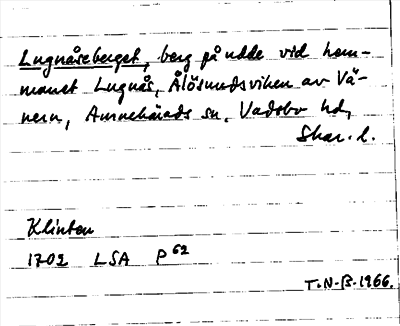 Lugnåseberget, berg på udde vid hem-
manet Lugnås, Ålösundsviken av Vä-
nern, Amnehärads sn, Vadsbo hd,
Skar. l.
Klinten
1702 LSA P 62
T.N-B.1966.